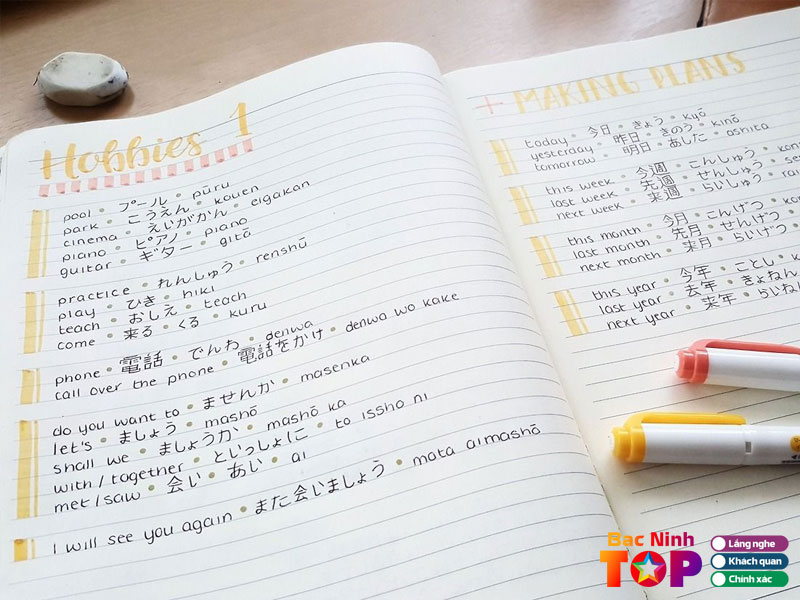 Hobbies 1
pool • プール • pūru
park • こうえん • kouen
cinema • えいがかん • eigakan
piano • ピアノ • piano
guitar • ギター • gitā
practice • れんしゅう • renshū
play • ひき • hiki
teach • おしえ • teach
come • 来る • くる • kuru
phone • 電話 • でんわ • denwa
call over the phone • 電話をかけ • denwa wo kake
do you want to • ませんか • masenka
let's • ましょう • mashō
shall we • ましょうか • mashō ka
with / together • といっしょに • to issho ni
met / saw • 会い • あい • ai
I will see you again • また会いましょう • mata aimashō
+ MAKING PLANS
today • 今日 • きょう • kyō
yesterday • 昨日 • きのう • kinō
tomorrow • 明日 • あした • ashita
this week • 今週 • こんしゅう •
last week • 先週 • せんしゅう •
next week • 来週 • らいしゅう •
this month • 今月 • こんげつ •
last month • 先月 • せんげつ •
next month • 来月 • らいげつ •
this year • 今年 • ことし •
last year • 去年 • きょねん
next year • 来年 •
Bac Ninh
TOP
Lắng nghe
Khách quan
Chính xác